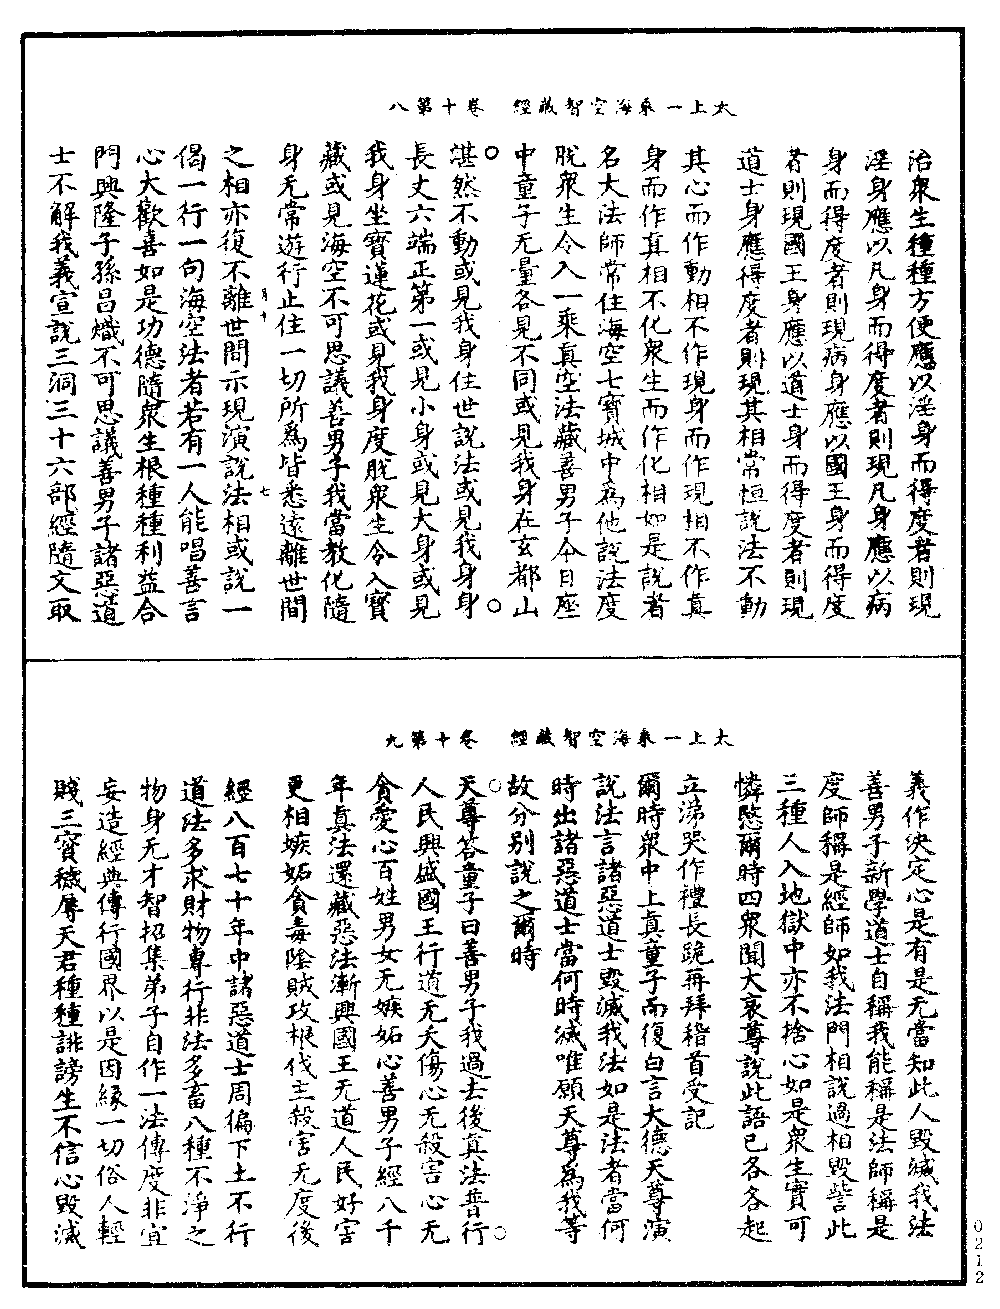 太上一乗海空智藏經　卷十第八
治衆生種種方便應以淫身而得度者則現
淫身應以凡身而得度者則現凡身應以病
身而得度者則現病身應以國王身而得度
者則現國王身應以道士身而得度者則現
道士身應得度者則現其相常恒說法不動
其心而作動相不作現身而作現相不作真
身而作真相不化衆生而作化相如是說者
名大法師常住海空七寶城中爲他說法度
脫衆生令入一乘真空法藏善男子今日座
中童子无量各見不同或見我身在玄都山
湛然不動或見我身住世說法或見我身身
長丈六端正第一或見小身或見大身或見
我身坐寶蓮花或見我身度脫衆生令入寶
藏或見海空不可思議善男子我當教化隨
身无常遊行止住一切所爲皆悉遠離世間
之相亦復不離世間示現演說法相或說一
偈一行一句海空法者若有一人能唱善言
心大歡喜如是功德隨衆生根種種利益合
門興隆子孫昌熾不可思議善男子諸惡道
士不解我義宣說三洞三十六部經隨文取
太上一乗海空智藏經　卷十第九
義作決定心是有是无當知此人毀滅我法
善男子新學道士自稱我能稱是法師稱是
度師稱是經師如我法門相說過相毀訾此
三種人入地獄中亦不捨心如是衆生實可
憐愍爾時四衆聞大哀尊說此語已各各起
立涕哭作禮長跪再拜稽首受記
爾時衆中上真童子而復白言大德天尊演
說法言諸惡道士毀滅我法如是法者當何
時出諸惡道士當何時滅唯願天尊爲我等
故分别說之爾時
天尊答童子曰善男子我過去後真法普行
人民興盛國王行道无夭傷心无殺害心无
貪愛心百姓男女无嫉妬心善男子經八千
年真法還藏惡法漸興國王无道人民好害
更相嫉妬貪毒陰賊攻根伐主殺害无度後
經八百七十年中諸惡道士周徧下土不行
道法多求財物專行非法多畜八種不淨之
物身无才智招集弟子自作一法傳度非宜
妄造經典傳行國界以是因緣一切俗人輕
賤三寶穢辱天君種種誹謗生不信心毀滅
0212